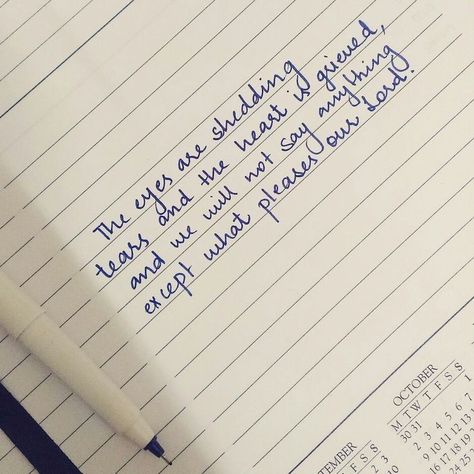 The eyes are shedding
tears and the heart is grieved,
and we will not say anything
except what pleases our Lord.
OCTOBER
M T W T F S S
30 31 1
2 3 4 5 6 7
9 10 11 12 13
16 17 18 19
TEMBER